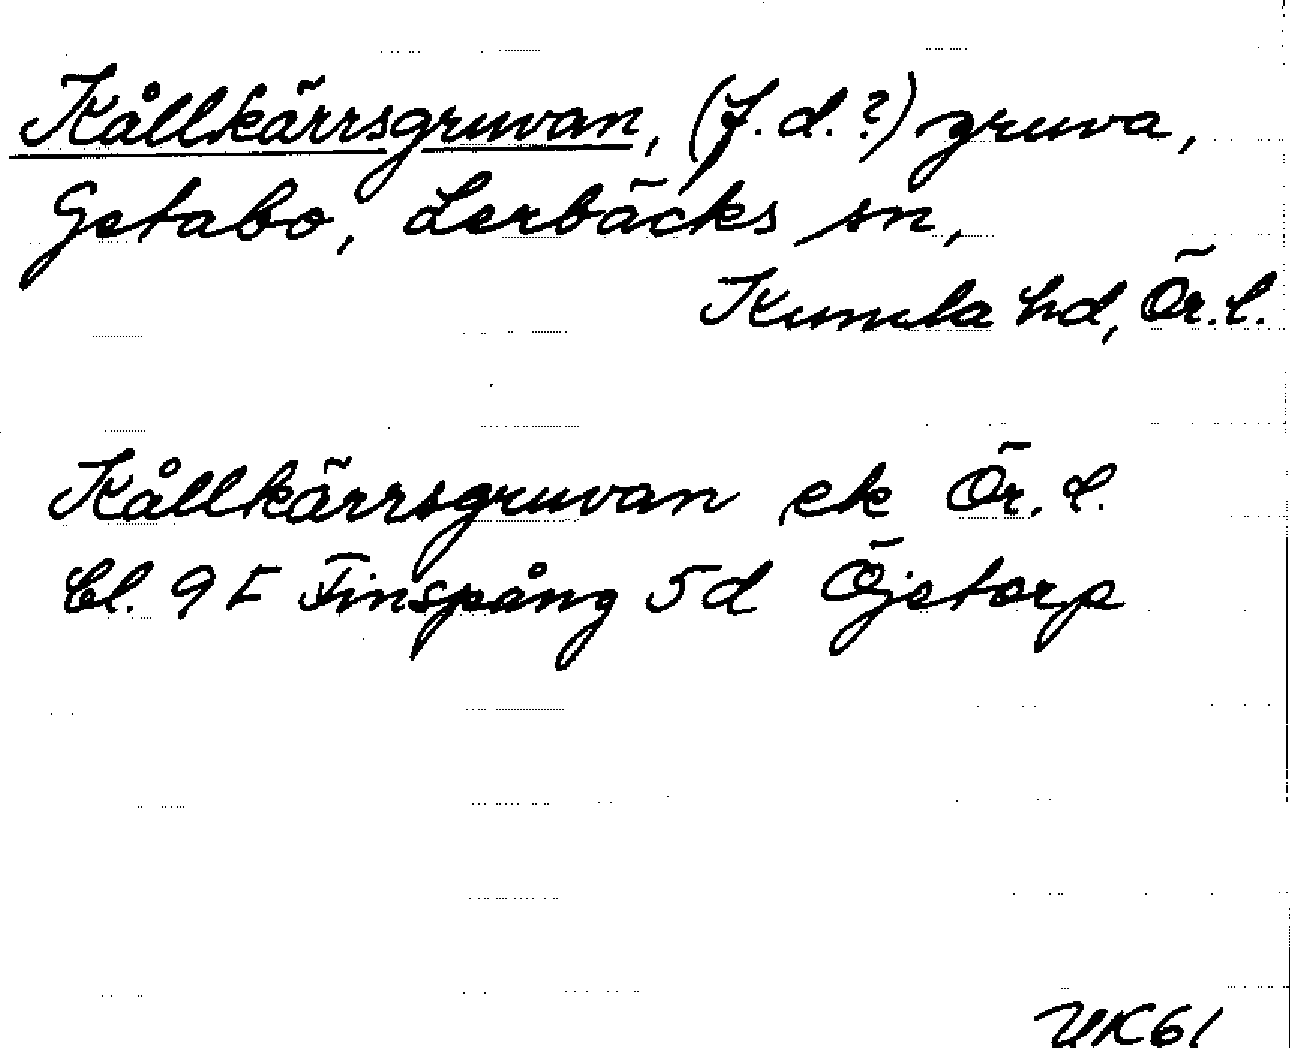 Kållkärrsgruvan, (f.d.?) gruva,
Getabo, Lerbäcks sn,
Kumla hd, Ör.l.
Kållkärrsgruvan ek Ör.l.
bl. 9F Finspång 5d Öjetorp
UK61